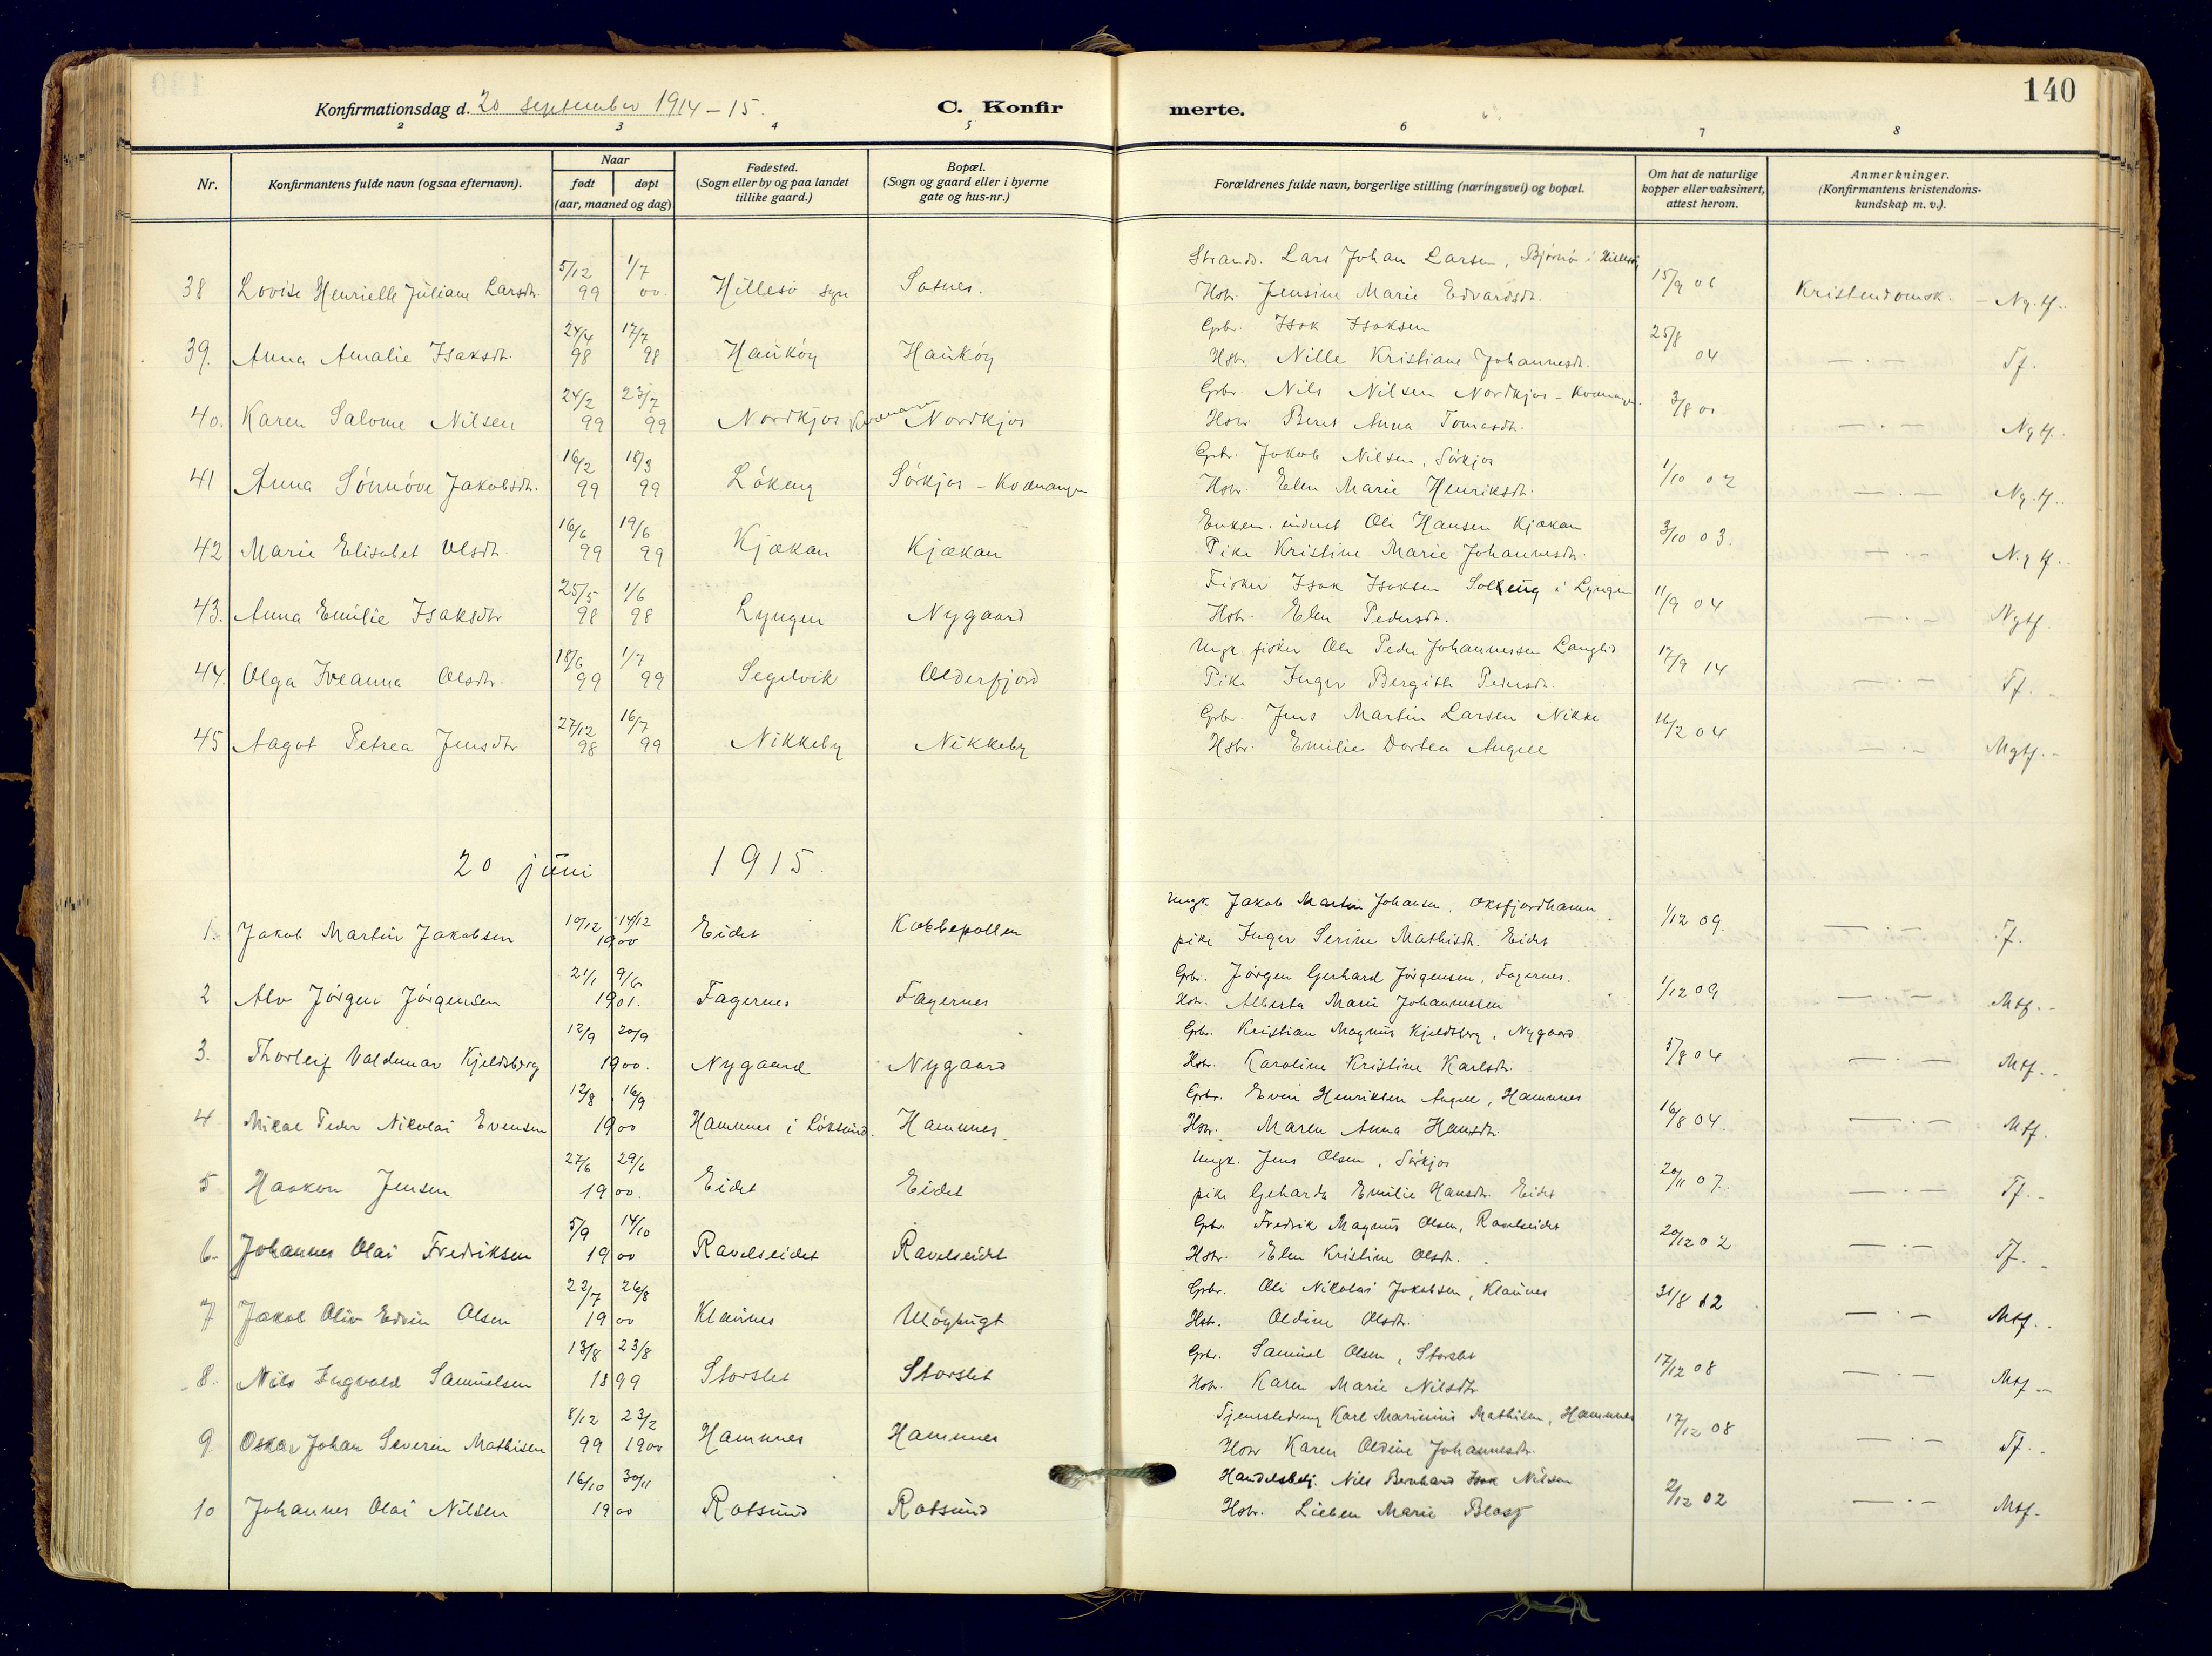 140
Konfirmationsdag d. 20 september 1914 – 15.
C. Konfirmerte.
2 3 4 5 6 7 8
Nr.
Konfirmantens fulde navn (ogsaa efternavn).
Naar
født døpt
(aar, maaned og dag)
Fødested.
(Sogn eller by og paa landet
tillike gaard.)
Bopæl.
(Sogn og gaard eller i byerne
gate og hus-nr.)
Forældrenes fulde navn, borgerlige stilling (næringsvei) og bopæl.
Om hat de naturlige
kopper eller vaksinert,
attest herom.
Anmerkninger.
(Konfirmantens kristendoms-
kundskap m. v.).
Lars Johan Larsen, Bjørnø i
38 Lovise Henrielle Juliane Larsdtr. 5/12 99 1/7 00. Hillesö Sotnes. Hstr. Jensine Marie Edvardsdtr. 15/9 06 Kristendomsk. – Ng.tf.
Gbr. Isak Isaksen
39. Anna Amalie Isaksdtr. 24/4 98 17/7 98 Hauköy Hauköy Hstr. Nille Kristiane Johannesdtr. 25/8 04 — . — Tf.
Gbr. Nils Nilsen Nordkjos – Kvænangen.
40. Karen Salome Nilsen 24/2 99 23/7 99 Nordkjos Kvænangen Nordkjos Hstr. Beret Anna Tomasdtr. 3/8 00 — . — Ng tf.
Gbr. Jakob Nilsen, Sörkjos
41 Anna Sönnöve Jakobsdtr. 16/2 99 18/3 99 Lökeng Sörkjos – Kvænangen Hstr. Elen Marie Henriksdtr. 1/10 02 — . — Ng.tf.
Enkem. inderst Ole Hansen Kjækan
42 Marie Elisabet Olsdtr. 16/6 99 19/6 99 Kjækan Kjækan Pike Kristine Marie Johannesdtr. 3/10 03. — . — Ng tf.
Fisker Isak Isaksen i Lyngen
43. Anna Emilie Isaksdtr 25/5 98 1/6 98 Lyngen Nygaard Hstr. Elen Pedersdtr. 11/9 04 — . — Ngtf.
Ungk. fisker Ole Peder Johannessen Langlid
44. Olga Iveanna Olsdtr. 18/6 99 1/7 99 Segelvik Olderfjord Pike Inger Bergitte Pedersdtr. 17/9 14 — . — Tf. –
Gbr. Jens Martin Larsen Nikke
45 Aagot Petrea Jensdtr 27/12 98 16/7 99 Nikkeby Nikkeby Hstr. Emilie Dortea Angell 16/2 04 — . — Mgtf. –
20 juni 1915.
Ungk. Jakob Martin Johansen, Oksfjordhamn
1. Jakob Martin Jakobsen 10/12 14/12 1900 Eidet Kobbepollen pike Inger Serine Mathisdtr. Eidet 1/12 09. — . — Tf.
Gbr. Jörgen Gerhard Jörgensen, Fagernes.
2 Alv Jörgen Jörgensen 21/1 9/6 1901. Fagernes Fagernes Hstr. Alberta Marie Johannessen 1/12 09 — . — Mtf. –
Gbr. Kristian Magnus Kjeldsberg, Nygaard
3. Thorleif Valdemar Kjeldsberg 12/9 20/9 1900. Nygaard Nygaard Hstr. Karoline Kristine Karlsdtr. 5/8 04 — . — Mtf. –
Gbr. Even Henriksen Angell, Hamnnes
4 Mikal Peder Nikolai Evensen 12/8 16/9 1900 Hamnnes i Löksund. Hamnnes. Hstr. Maren Anna Hansdtr. 16/8 04. — . — Mtf.
Ungk. Jens Olsen, Sörkjos
5 Haakon Jensen 27/6 29/6 1900. Eidet Eidet pike Geharda Emilie Hansdtr. Eidet 20/11 07. — . — Tf. –
Gbr. Fredrik Magnus Olsen, Ravelseidet
6. Johannes Olai Fredriksen 5/9 14/10 1900 Ravelseidet Ravelseidet Hstr. Elen Kristine Olsdtr. 20/12 02 — . — Tf. –
Gbr. Ole Nikolai Jakobsen, Klaunes
7 Jakob Oliv Edvin Olsen 22/7 26/8 1900 Klaunes Uløybugt Hstr. Oldine Olsdtr. 31/8 12 — . — Mtf. –
Gbr. Samuel Olsen, Storslet
8. Nils Ingvald Samuelsen 13/8 23/8 1899 Storslet Storslet Hstr. Karen Marie Nilsdtr 17/12 08 — . — Mtf –
Tjenestedreng Karl Marinius Mathisen, Hamnnes
9 Oskar Johan Severin Mathisen 8/12 99 23/2 1900 Hamnnes Hamnnes Hstr Karen Oldine Johannesdtr. 17/12 08 — . — Tf. –
Handelsbetj. Nils Bernhard Isak Nilsen
10 Johannes Olai Nilsen 16/10 30/11 1900 Rotsund Rotsund Hstr. Lieben Marie 2/12 02 — . — Mtf –